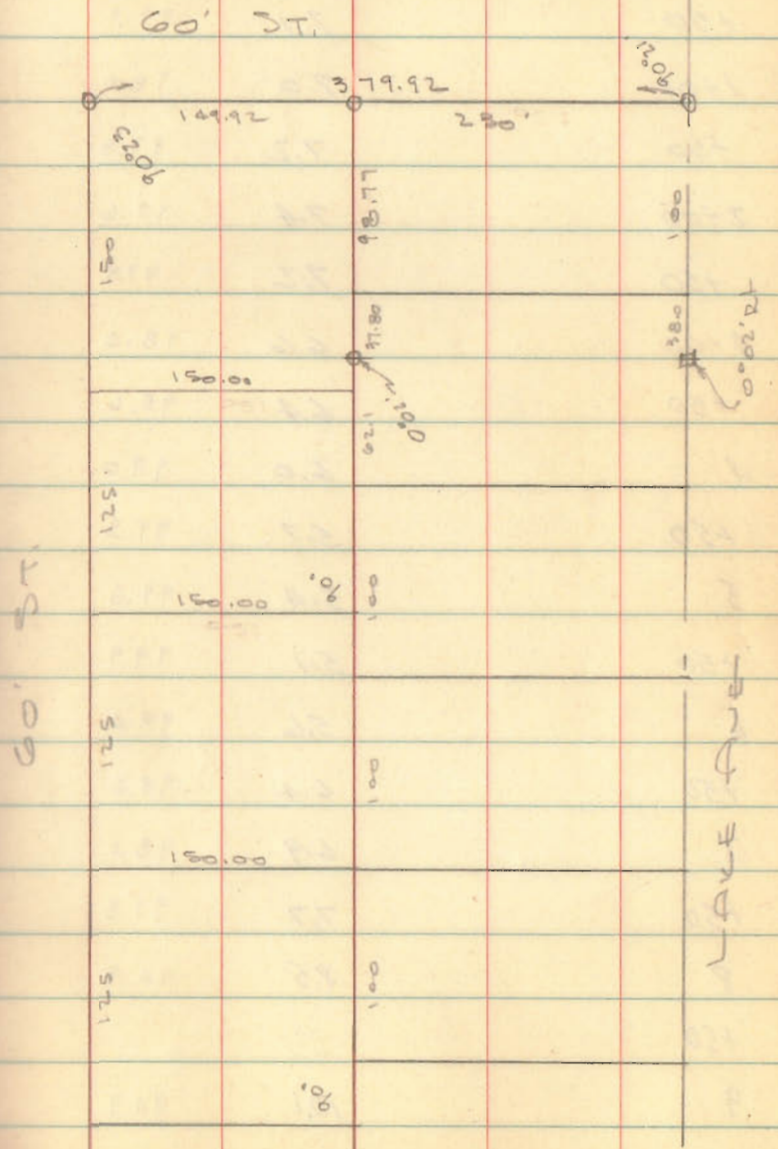 60' ST.
379.92
90°21'
149.92
230'
90°23'
98.77
100
150
37.80
38.0
0°02' Rt
150.00
0°01'
62.1
125
60' ST.
150.00
90°
100
125
100
LAKE AVE
150.00
125
100
90°